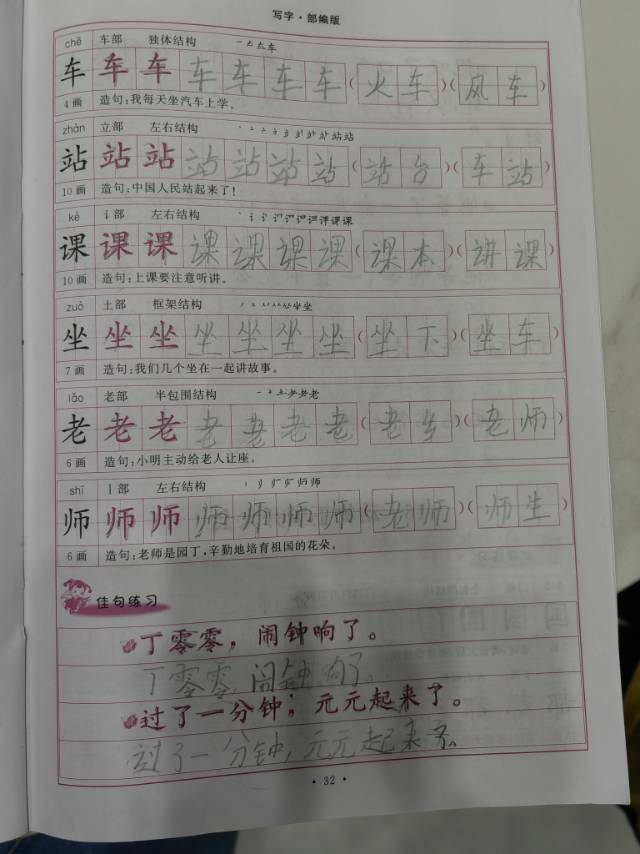 写字·部编版
chē 车部 独体结构
车 车 车 车 车 车 车 (火车) (风车)
4画 造句:我每天坐汽车上学。
zhàn 立部 左右结构
站 站 站 站 站 站 站 (站台) (车站)
10画 造句:中国人民站起来了!
kè 讠部 左右结构
课 课 课 课 课 课 课 (课本) (讲课)
10画 造句:上课要注意听讲。
zuò 土部 框架结构
坐 坐 坐 坐 坐 坐 坐 (坐下) (坐车)
7画 造句:我们几个坐在一起讲故事。
lǎo 老部 半包围结构
老 老 老 老 老 老 老 (老 ) (老师)
6画 造句:小明主动给老人让座。
shī 丨部 左右结构
师 师 师 师 师 师 师 (老师) (师生)
6画 造句:老师是园丁,辛勤地培育祖国的花朵。
佳句练习
丁零零,闹钟响了。
丁零零,闹钟响了。
过了一分钟,元元起来了。
过了一分钟,元元起来
·32·